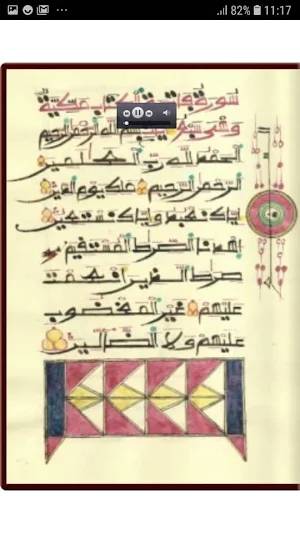 82% 11:17
سورة فاتحة الكتاب مكية
وهي سبع بسم الله الرحمن الرحيم
الحمد لله رب العلمين
الرحمن الرحيم ملك يوم الدين
اياك نعبد واياك نستعين
اهدنا الصرط المستقيم
صرط الذين انعمت
عليهم غير المغضوب
عليهم ولا الضالين